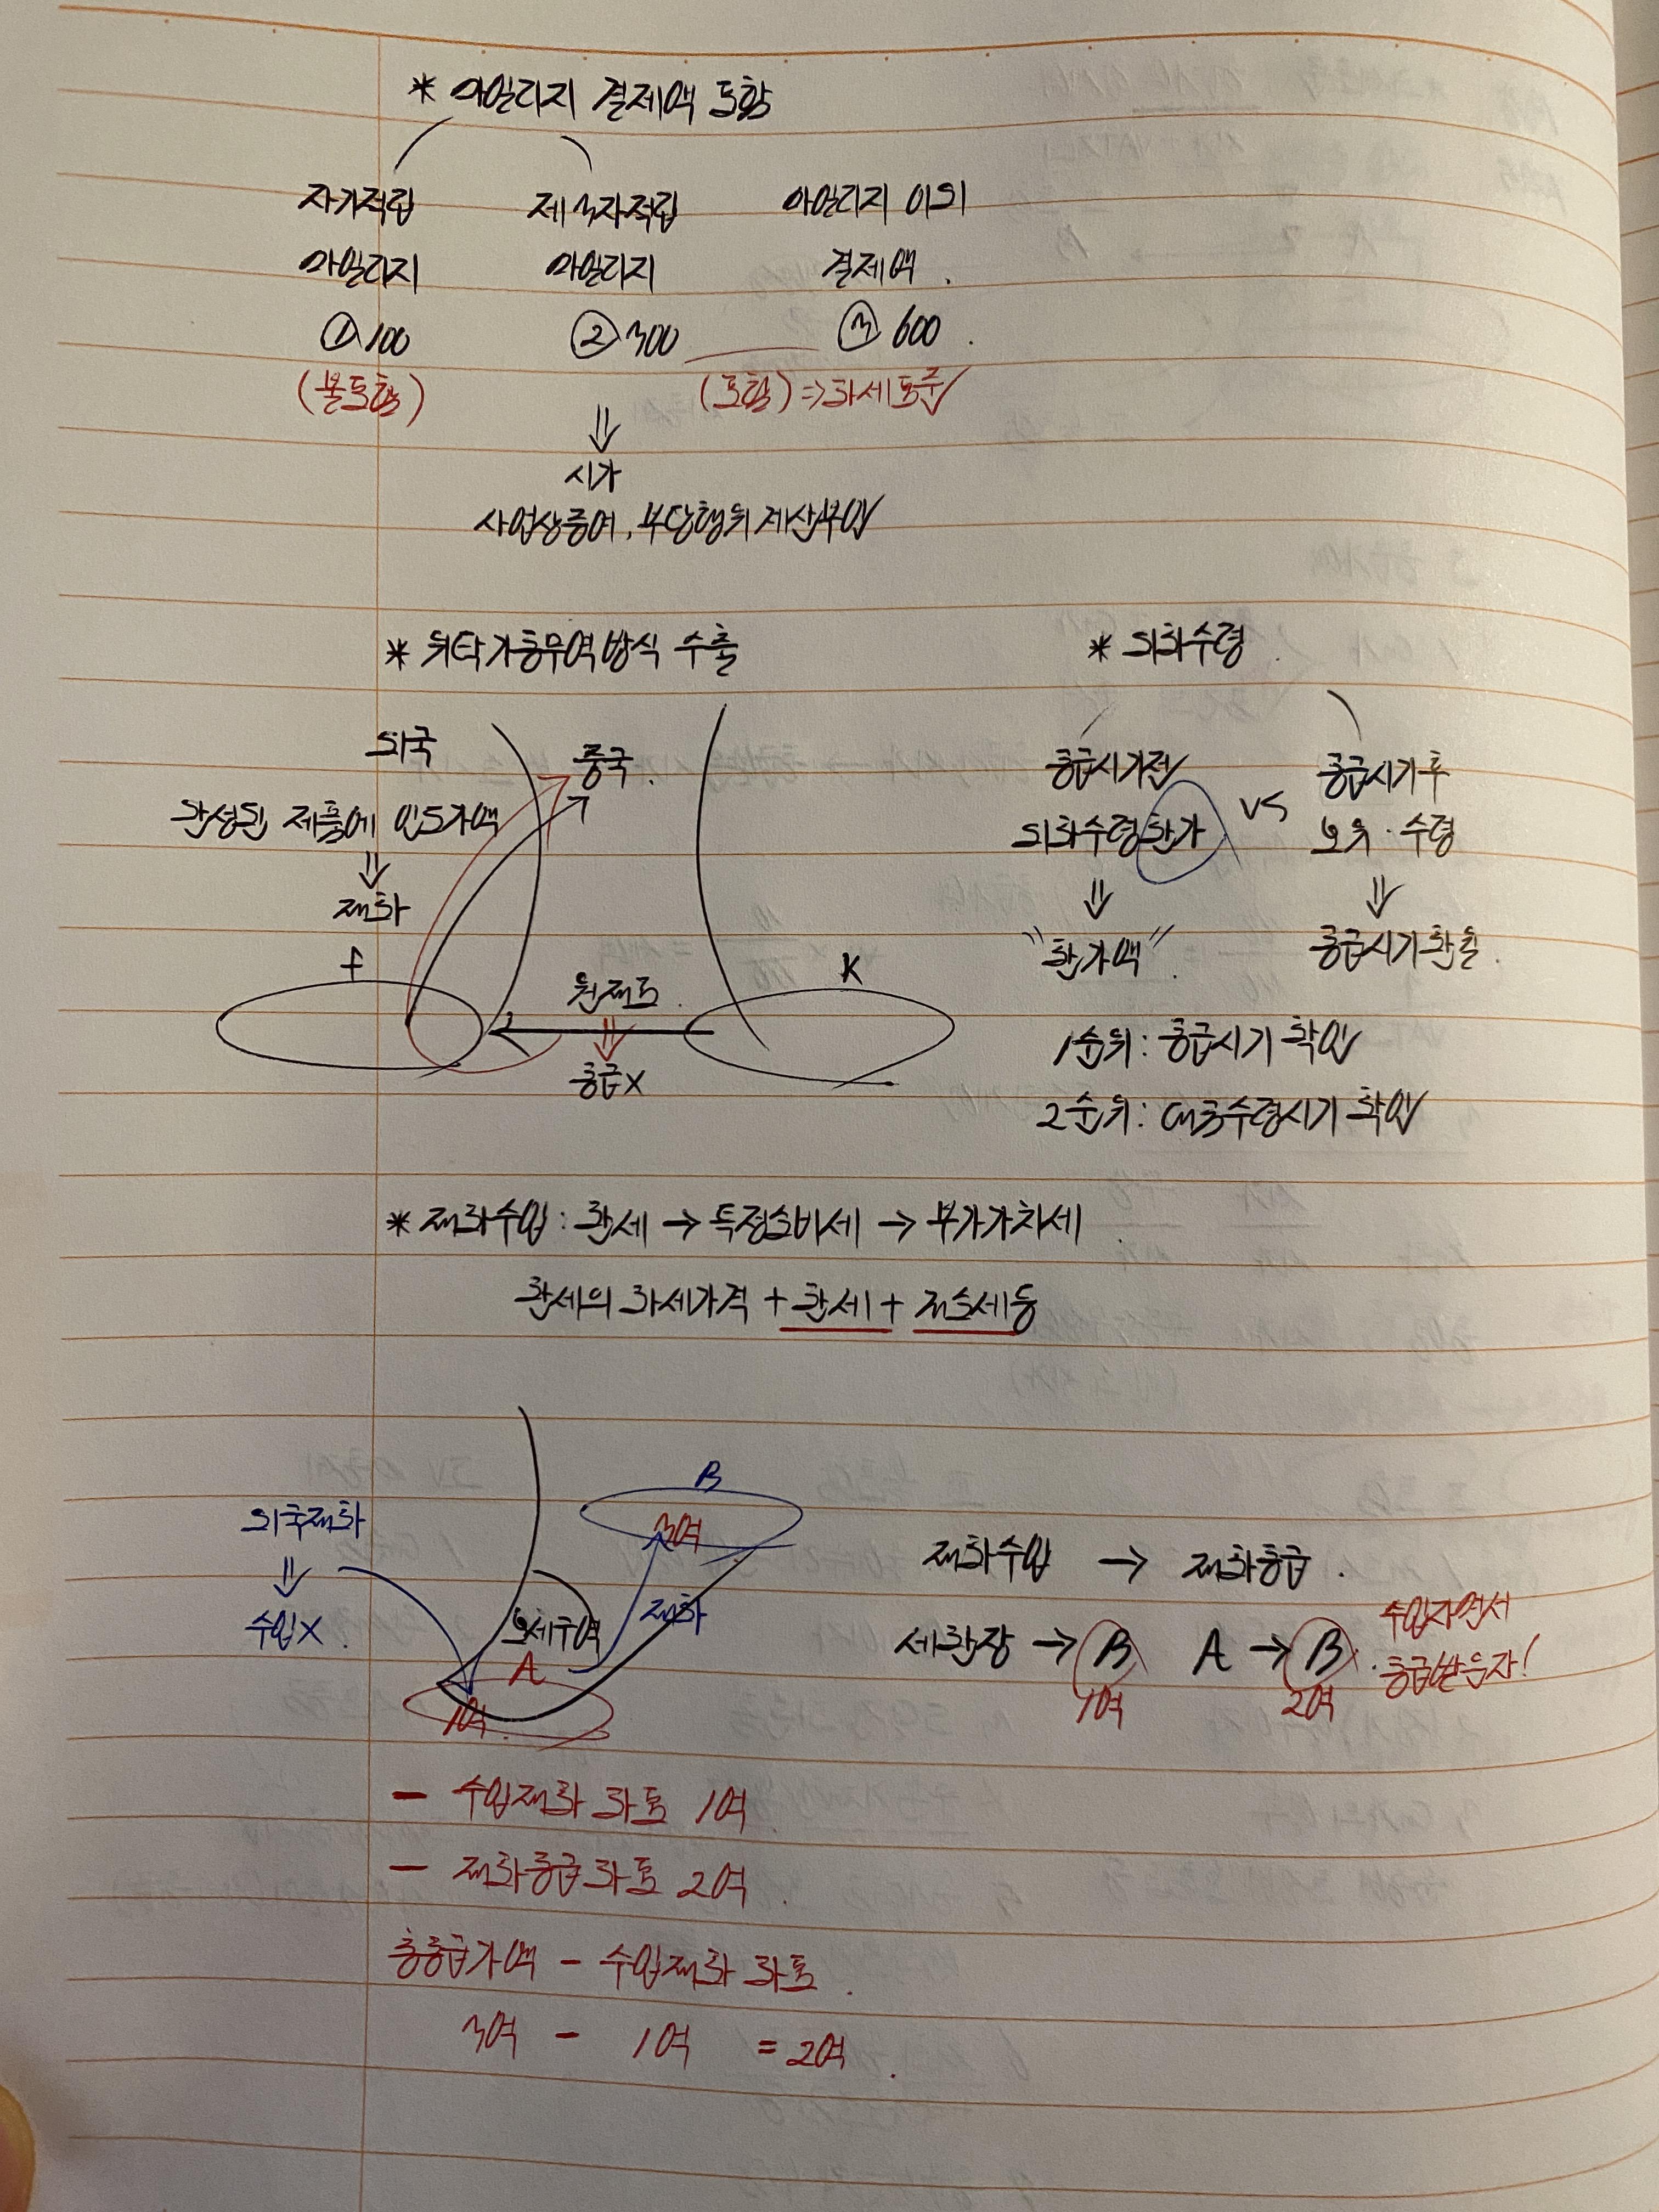 * 마일리지 결제액 포함
자기적립 제3자적립 마일리지 이외
마일리지 마일리지 결제액.
① 100 ② 300 ③ 600.
(불포함) (포함) ⇒ 과세표준
⇓
시가
사업상증여, 부당행위계산부인
* 위탁가공무역방식 수출
외국 중국.
완성된 제품에 인도가액
⇓
재화
f K
원재료.
⇓
공급X
* 외화수령.
공급시기전 VS 공급시기후
외화수령환가 보유·수령
⇓ ⇓
"환가액". 공급시기환율.
1순위: 공급시기 확인
2순위: 대금수령시기 확인
* 재화수입: 관세 → 특정소비세 → 부가가치세.
관세의 과세가격 + 관세 + 개소세등
B
외국재화 3억
⇓
수입X. 보세구역 재화
A
1억.
재화수입 → 재화공급.
세관장 → B A → B. 수입자면서
1억 2억 공급받는자!
- 수입재화 과표 1억
- 재화공급과표 2억.
총공급가액 - 수입재화 과표.
3억 - 1억 = 2억.